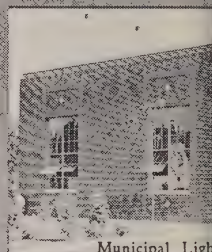 Municipal Ligh